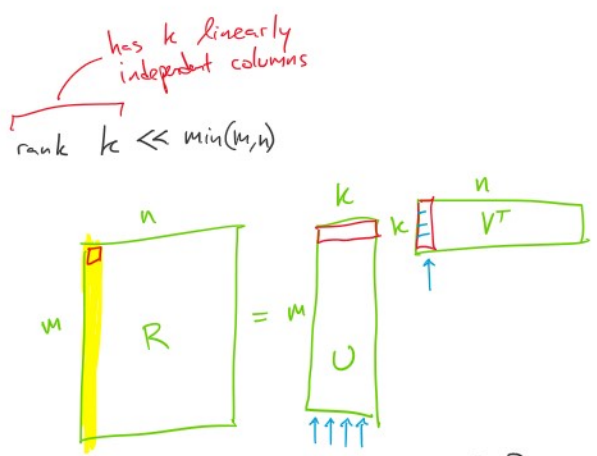 has k linearly
independent columns
rank k << min(m,n)
n
m
R
=
k
m
U
k
n
V^T